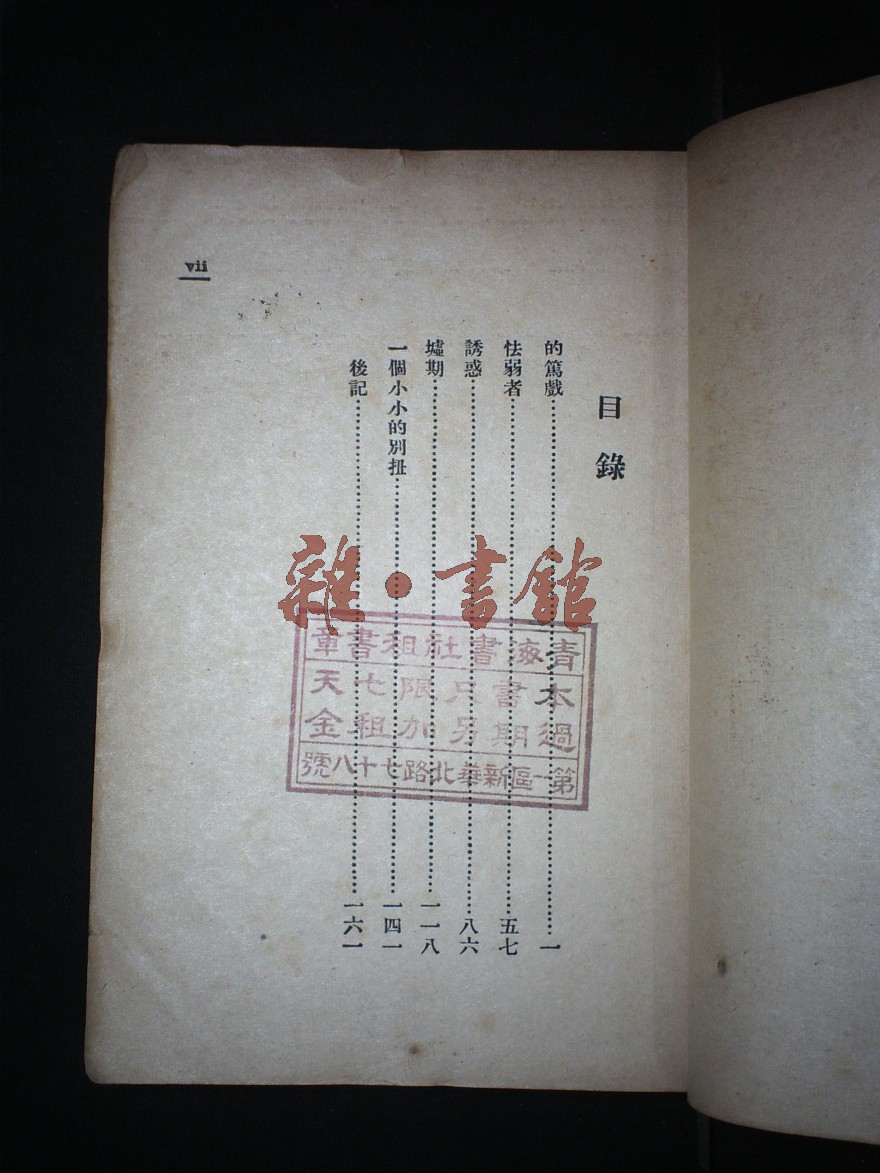 目錄
的篤戲……一
怯弱者……五七
誘惑……八六
墟期……一一八
一個小小的別扭……一四一
後記……一六一
vii
雜·書館
青海書社租書章
本書只限七天
過期另加租金
第一區新華北路七十八號